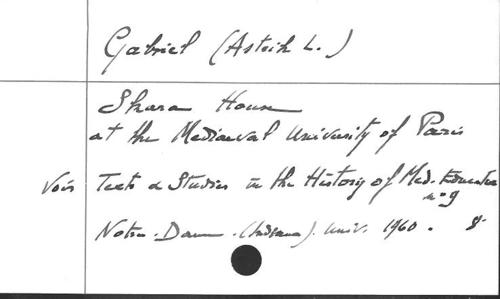 Gabriel (Astrik L.)
Skara House
at the Mediaeval University of Paris
Voir Texts & Studies in the History of Med. Education
n° 9
Notre-Dame (Indiana). Univ. 1960. 8